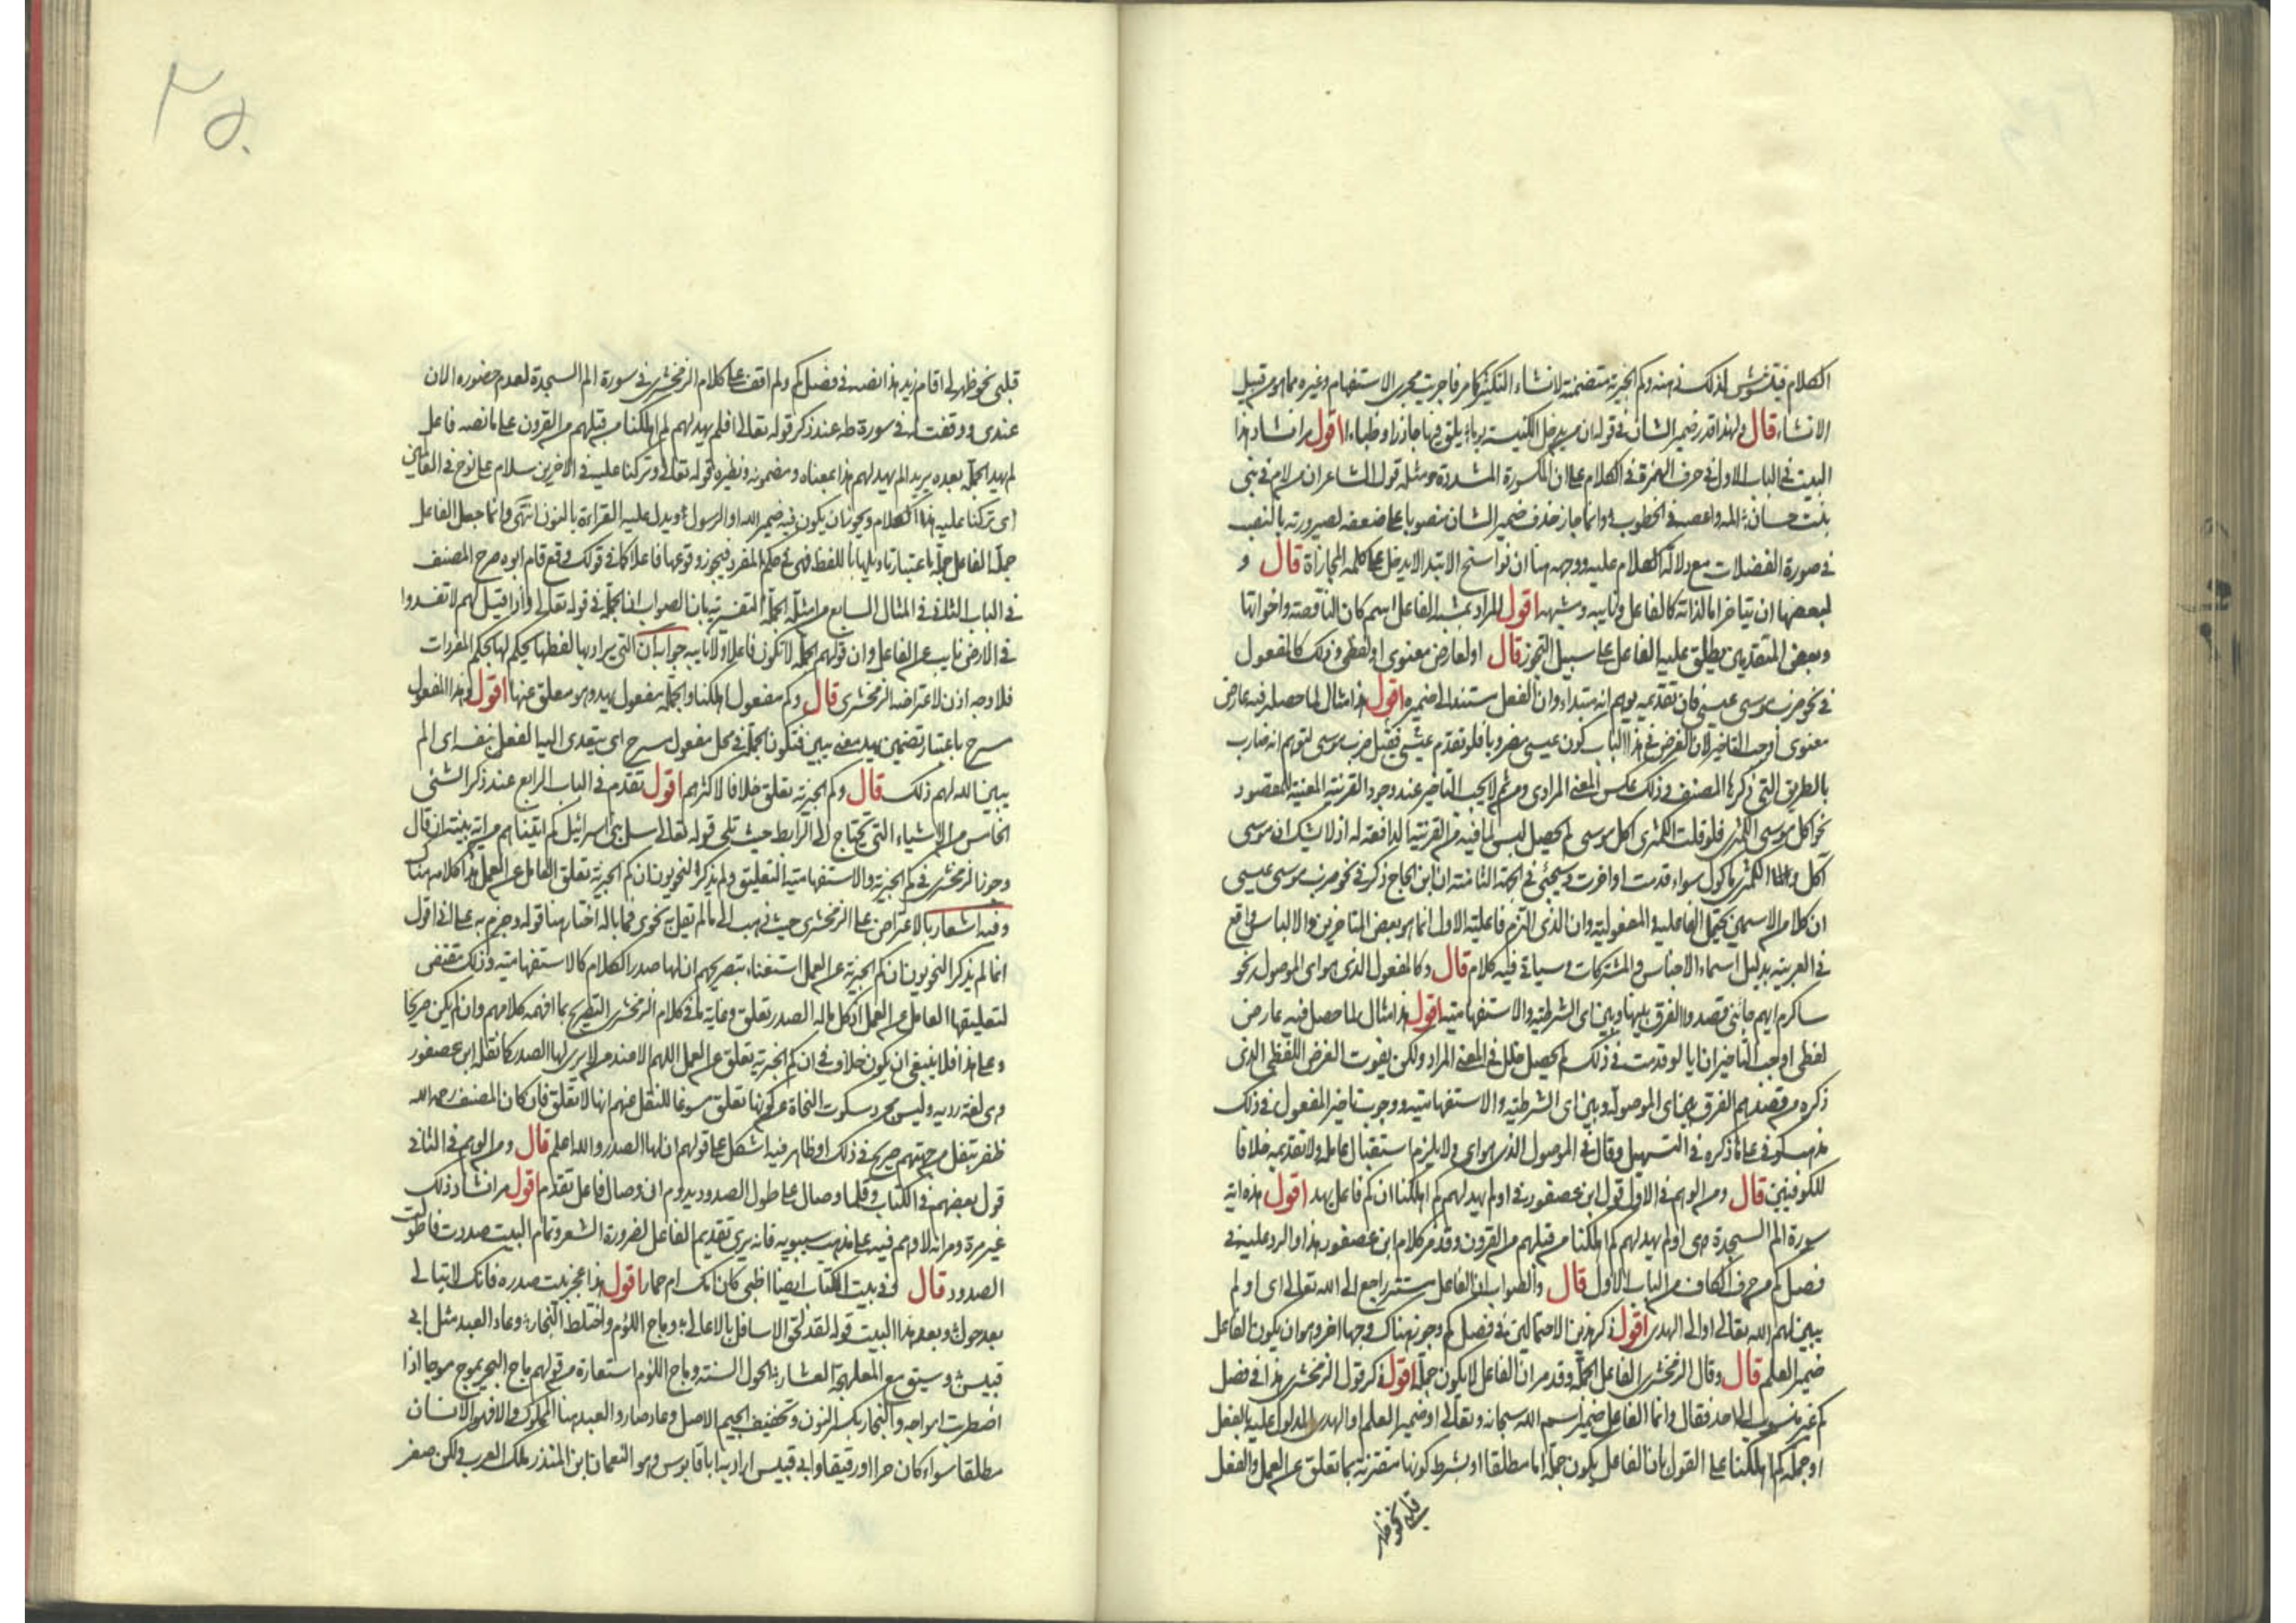 الكلام فيتشوش لذلك ذهنه وكم الخبرية متضمنة لانشاء التكثير كما مر فاجريت مجرى الاستفهام وغيره مما هو من قبيل
الانشاء قال ولهذا قدر ضمير الشان في قوله ان من يدخل الكنيسة يوما يلق فيها جآذرا وظباءا اقول مر انشاد هذا
البيت في الباب الاول في حرف الهمزة في الكلام على ان المكسورة المشددة ومثله قول الشاعر ان من لام في بني
بنت حسان المه واعصه في الخطوب وانما جاز حذف ضمير الشان منصوبا على ضعفه لصيرورته بالنصب
في صورة الفضلات مع دلالة الكلام عليه ووجهه هنا ان نواسخ الابتدا لا يدخل على كلمه المجازاة قال و
لبعضها ان يتاخر اما لذاته كالفاعل ونايبه ومشبهه اقول المراد بمشبه الفاعل اسم كان الناقصة واخواتها
وبعض المتقدمين يطلق عليه الفاعل على سبيل التجوز قال او لعارض معنوي او لفظي وذلك كالمفعول
في نحو ضرب موسى عيسى فان تقديمه يوهم انه مبتداء وان الفعل مستند الى ضميره اقول هذا مثال لما حصل فيه عارض
معنوي أوجب التاخير لان الغرض في هذا الباب كون عيسى مضروبا فلو تقدم عيسى فقيل ضرب موسى لتوهم انه ضارب
بالطريق التي ذكرها المصنف وذلك عكس المعنى المرادى ومن ثم لا يجب التاخير عند وجود القرينة المعنية للمقصود
نحو اكل موسى الكمثرى فلو قلت الكمثرى اكل موسى لم يحصل لبس لما فيه من القرينة الدافعة له اذ لا يشك ان موسى
آكل و الكمثرى ماكول سواء قدمت او اخرت وسيجئ في الجهة الثامنة ان ابن الحاج ذكر في نحو ضرب موسى عيسى
ان كلا من الاسمين يحتمل الفاعلية والمفعولية وان الذى التزم فاعلية الاول انما هو بعض المتاخرين والالباس واقع
في العربية بدليل اسماء الاجناس والمشتركات وسياتي فيه كلام قال وكالمفعول الذى هو اى الموصول نحو
ساكرم ايهم جائني قصدوا الفرق بينها وبين اى الشرطية والاستفهامية اقول هذا مثال لما حصل فيه عارض
لفظي اوجب التاخير لان ايا لو قدمت في ذلك لم يحصل خلل في المعنى المراد ولكن يفوت الغرض اللفظي الذى
ذكره من قصدهم الفرق بين اى الموصولة وبين اى الشرطية والاستفهامية ووجوب تاخير المفعول في ذلك
مذهب كوفي على ما ذكره في التسهيل وقال في الموصول الذى هو اى ولا يلزم استقبال عامله ولا تقديمه خلافا
للكوفيين قال ومن الوهم في الاول قول ابن عصفور في اولم يهد لهم كم اهلكنا ان كم فاعل يهد اقول هذه اية
سورة الم السجدة وهى اولم يهد لهم كم اهلكنا من قبلهم من القرون وقد مر كلام ابن عصفور هذا والرد عليه في
فصل كم من حرف الكاف من الباب الاول قال والصواب ان الفاعل مستتر راجع الى الله تعالى اى اولم
يبين لهم الله تعالى او الى الهدى اقول ذكر هذين الاحتمالين في فصل كم وجوز هناك وجها اخر وهو ان يكون الفاعل
ضمير العلم قال وقال الزمخشرى الفاعل الجملة وقد مر ان الفاعل لا يكون جملة اقول ذكر قول الزمخشرى هذا في فصل
كم غير منسوب الى احد فقال وانما الفاعل ضمير اسم الله سبحانه وتعالى او ضمير العلم او الهدى المدلول عليه بالفعل
او جملة كم اهلكنا على القول بان الفاعل يكون جملة اما مطلقا او بشرط كونها مقترنة بما تعلق عن العمل والفعل
قلبي نحو ظهر
٢٥٠
قلبي نحو ظهر لي اقام زيد هذا نصه في فصل كم ولم اقف على كلام الزمخشرى في سورة الم السجدة لعدم حضوره الان
عندى ووقفت له في سورة طه عند ذكر قوله تعالى افلم يهد لهم كم اهلكنا من قبلهم من القرون على ما نصه فاعل
لم يهد الجملة بعده يريد الم يهد لهم هذا بمعناه ومضمونه ونظيره قوله تعالى وتركنا عليه في الآخرين سلام على نوح في العالمين
اى تركنا عليه هذا الكلام ويجوز ان يكون فيه ضمير الله او الرسول ويدل عليه القراءة بالنون انتهى وانما جعل الفاعل
جملة الفاعل جملة باعتبار تاويلها باللفظ فهى في حكم المفرد فيجوز وقوعها فاعلا كما في قولك وقع قام ابوه صرح المصنف
في الباب الثاني في المثال السابع من امثلة الجملة التفسيرية بان الصواب ان الجملة في قوله تعالى واذا قيل لهم لا تفسدوا
في الارض نايب عن الفاعل وان قولهم الجملة لا تكون فاعلا ولا نايبه جوابه ان التي يراد بها لفظها يحكم لها بحكم المفردات
فلا وجه اذن لاعتراضه الزمخشرى قال وكم مفعول اهلكنا والجملة مفعول يهد وهو معلق عنها اقول وهذا المفعول
مسرح باعتبار تضمين يهد معنى يبين فتكون الجملة في محل مفعول مسرح اى يتعدى اليه الفعل بنفسه اى الم
يبين الله لهم ذلك قال وكم الخبرية تعلق خلافا لاكثرهم اقول تقدم في الباب الرابع عند ذكر الشئ
الخامس من الاشياء التي تحتاج الى الرابط حيث تلى قوله تعالى سل بنى اسرائيل كم اتيناهم من اية بينة ان قال
وجوز الزمخشرى في كم الخبرية والاستفهامية التعليق ولم يذكر النحويون ان كم الخبرية تعلق العامل عن العمل هذا كلامه هناك
وفيه اشعار بالاعتراض على الزمخشرى حيث ذهب الى ما لم تقل به نحوى فما باله اختار هنا قوله وجزم به على انى اقول
انما لم يذكر النحويون ان كم الخبرية عن العمل استغناء بتصريحهم ان لها صدر الكلام كالاستفهامية وذلك مقتضى
لتعليقها العامل عن العمل اذ كل ما له الصدر تعلق وغاية ما في كلام الزمخشرى التصريح بما افهمه كلامهم وان لم يكن صريحا
وعلى هذا فلا ينبغى ان يكون خلاف في ان كم الخبرية تعلق عن العمل اللهم الا عند من لا يرى لها الصدر كما نقله ابن عصفور
وهى لغة ردية وليس مجرد سكوت النحاة عن كونها تعلق مسوغا للنقل عنهم انها لا تعلق فان كان المصنف رحمه الله
ظفر بنقل من جهتهم صريح في ذلك او ظاهر فيه اشكل على قولهم ان لها الصدر والله اعلم قال ومن الوهم في الثاني
قول بعضهم في الكتاب وقلما وصال على طول الصدود يدوم ان وصال فاعل تقدم اقول مر انشاد ذلك
غير مرة ومر انه لا وهم فيه على مذهب سيبويه فانه يرى تقديم الفاعل لضرورة الشعر وتمام البيت صددت فاطولت
الصدود قال وفي بيت الكتاب ايضا اظبي كان امك ام حمار اقول هذا عجز بيت صدره فانك لا تبالي
بعد حول وبعد هذا البيت قوله لقد لحق الاسافل بالاعالى وماج اللؤم واختلط النجار وعاد العبد مثل ابى
قبيس وسيق مع المعلهجة العشار الحول السنة وماج اللؤم استعارة من قولهم ماج البحر يموج موجا اذا
اضطربت امواجه والنجار بكسر النون وتخفيف الجيم الاصل وعاد صار والعبد هنا المملوك والافهو الانسان
مطلقا سواء كان حرا او رقيقا وابى قبيس اراد به ابا قابوس وهو النعمان ابن المنذر ملك العرب ولكن صغر